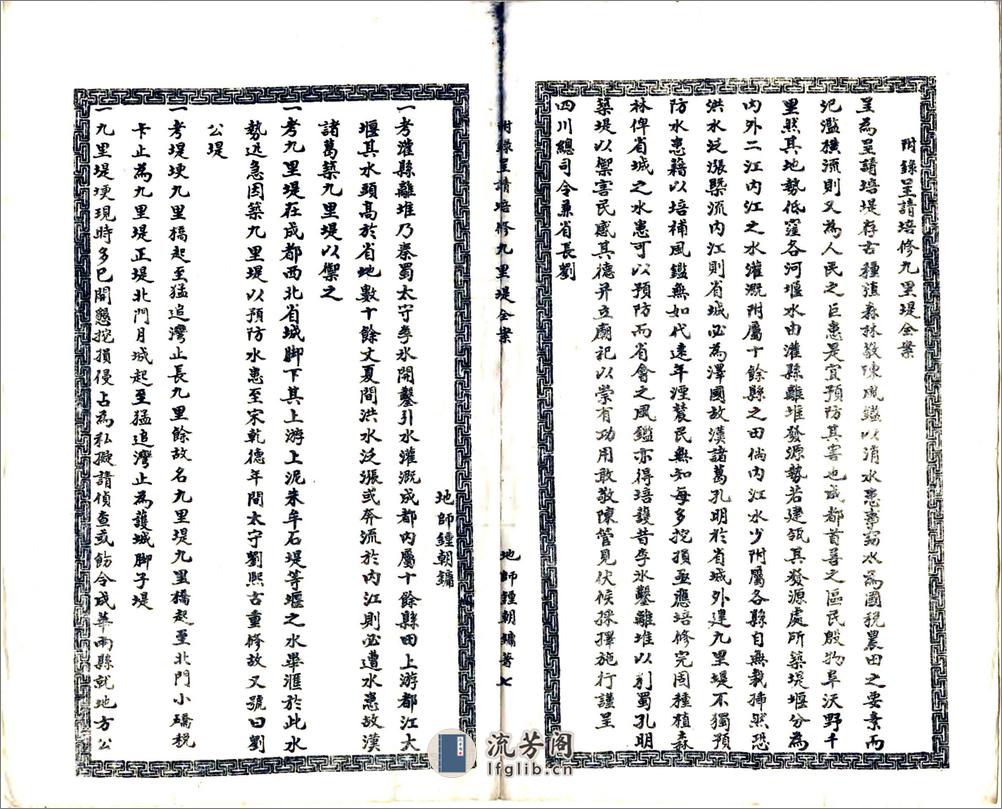 附錄呈請培修九里堤全案
呈為呈請培堤存古種植森林敬陳風鑑以消水患事竊水為國稅農田之要素而
氾濫橫流則又為人民之巨患是宜預防其害也成都首善之區民殷物阜沃野千
里然其地勢低窪各河堰水由灌縣離堆發源勢若建瓴其發源處所築堤堰分為
內外二江內江之水灌溉附屬十餘縣之田倘內江水少附屬各縣自無栽插然恐
洪水泛漲槩流內江則省城必為澤國故漢諸葛孔明於省城外建九里堤不獨預
防水患藉以培補風鑑無如代遠年湮蠢民無知每多挖損亟應培修完固種植森
林俾省城之水患可以預防而省會之風鑑亦得培護昔李氷鑿離堆以別蜀孔明
築堤以禦害民感其德并立廟祀以崇有功用敢敬陳管見伏候採擇施行謹呈
四川總司令兼省長劉
附錄呈請培修九里堤全案
地師鍾朝鏞著 七
地師鍾朝鏞
一考灌縣離堆乃秦蜀太守李氷開鑿引水灌溉成都內屬十餘縣田上游都江大
堰其水頭高於省地數十餘丈夏間洪水泛漲或奔流於內江則必遭水患故漢
諸葛築九里堤以禦之
一考九里堤在成都西北省城脚下其上游上泥朱牟石堤等堰之水畢滙於此水
勢迅急因築九里堤以預防水患至宋乾德年間太守劉熙古重修故又號曰劉
公堤
一考堤埂九里橋起至猛追灣止長九里餘故名九里堤九里橋起至北門小磚稅
卡止為九里堤正堤北門月城起至猛追灣止為護城脚子堤
一九里堤埂現時多已開懇挖損侵占為私擬請偵查或飭令成華兩縣就地方公
流芳阁
lfglib.cn